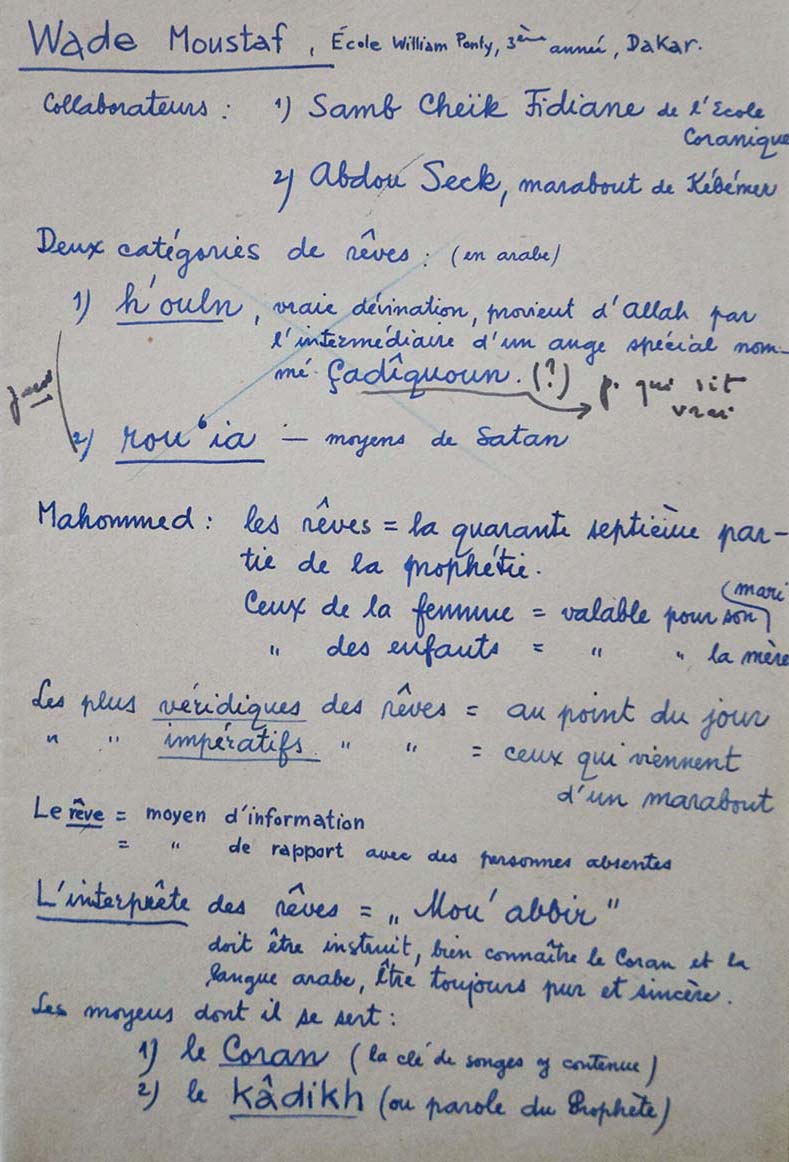 Wade Moustaf, École William Ponty, 3ème année, Dakar.
Collaborateurs : 1) Samb Cheïk Fidiane de l'Ecole
Coranique
2) Abdou Seck, marabout de Kébémer
Deux catégories de rêves : (en arabe)
1) h'ouln, vraie dévination, provient d'Allah par
l'intermédiaire d'un ange spécial nom-
mé Çadîquoun. (?) p. qui dit
vrai
2) rou'ia — moyens de Satan
Mahommed : les rêves = la quarante septième par-
tie de la prophétie.
Ceux de la femme = valable pour son (mari
" des enfants = " " la mère
Les plus véridiques des rêves = au point du jour
" " impératifs " " = ceux qui viennent
d'un marabout
Le rêve = moyen d'information
= " de rapport avec des personnes absentes
L'interprête des rêves = „ Mou'abbir "
doit être instruit, bien connaître le Coran et la
langue arabe, être toujours pur et sincère.
Les moyens dont il se sert :
1) le Coran (la clé de songes y contenue)
2) le kâdikh (ou parole du Prophète)